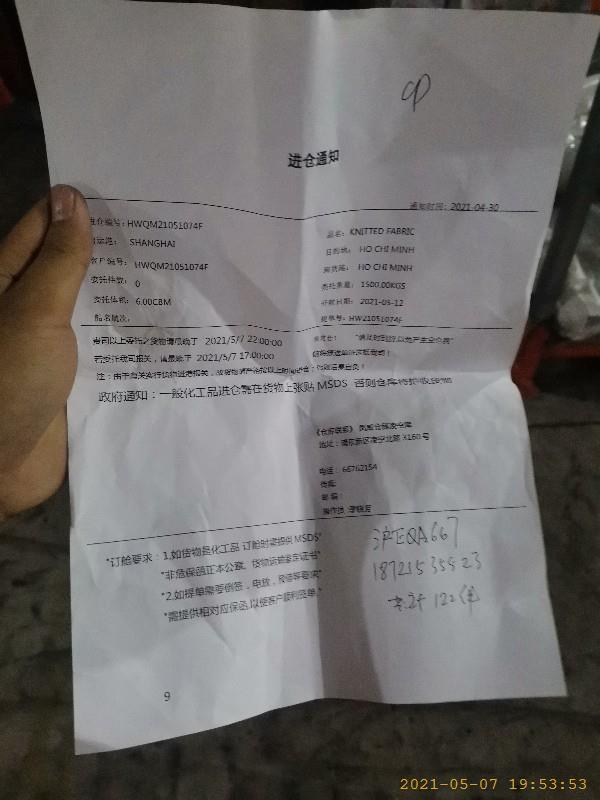 进仓通知
通知时间：2021-04-30
进仓编号：HWQM21051074F
品名：KNITTED FABRIC
SHANGHAI
目的地：HO CHI MINH
客户编号：HWQM21051074F
HO CHI MINH
委托件数：0
委托重量：1500.00KGS
委托体积：6.00CBM
开航日期：2021-05-12
船名航次：
提单号：HW21051074F
贵司以上委托之货物请最晚于 2021/5/7 22:00:00
若委托我司报关，请最晚于 2021/5/7 17:00:00
政府通知：一般化工品进仓需在货物上张贴 MSDS 否则仓库将
地址：浦东新区凌空北路 3160 号
电话：66762154
传真：
邮编：
*订舱要求：1.如货物是化工品 订舱时需提供 MSDS*
*非危保函正本公章、货物运输鉴定证书*
*2.如提单需要倒签，电放，
*需提供相对应保函,以便客户顺利签单.*
沪EQA667
18721535523
共计 122件
9
2021-05-07 19:53:53